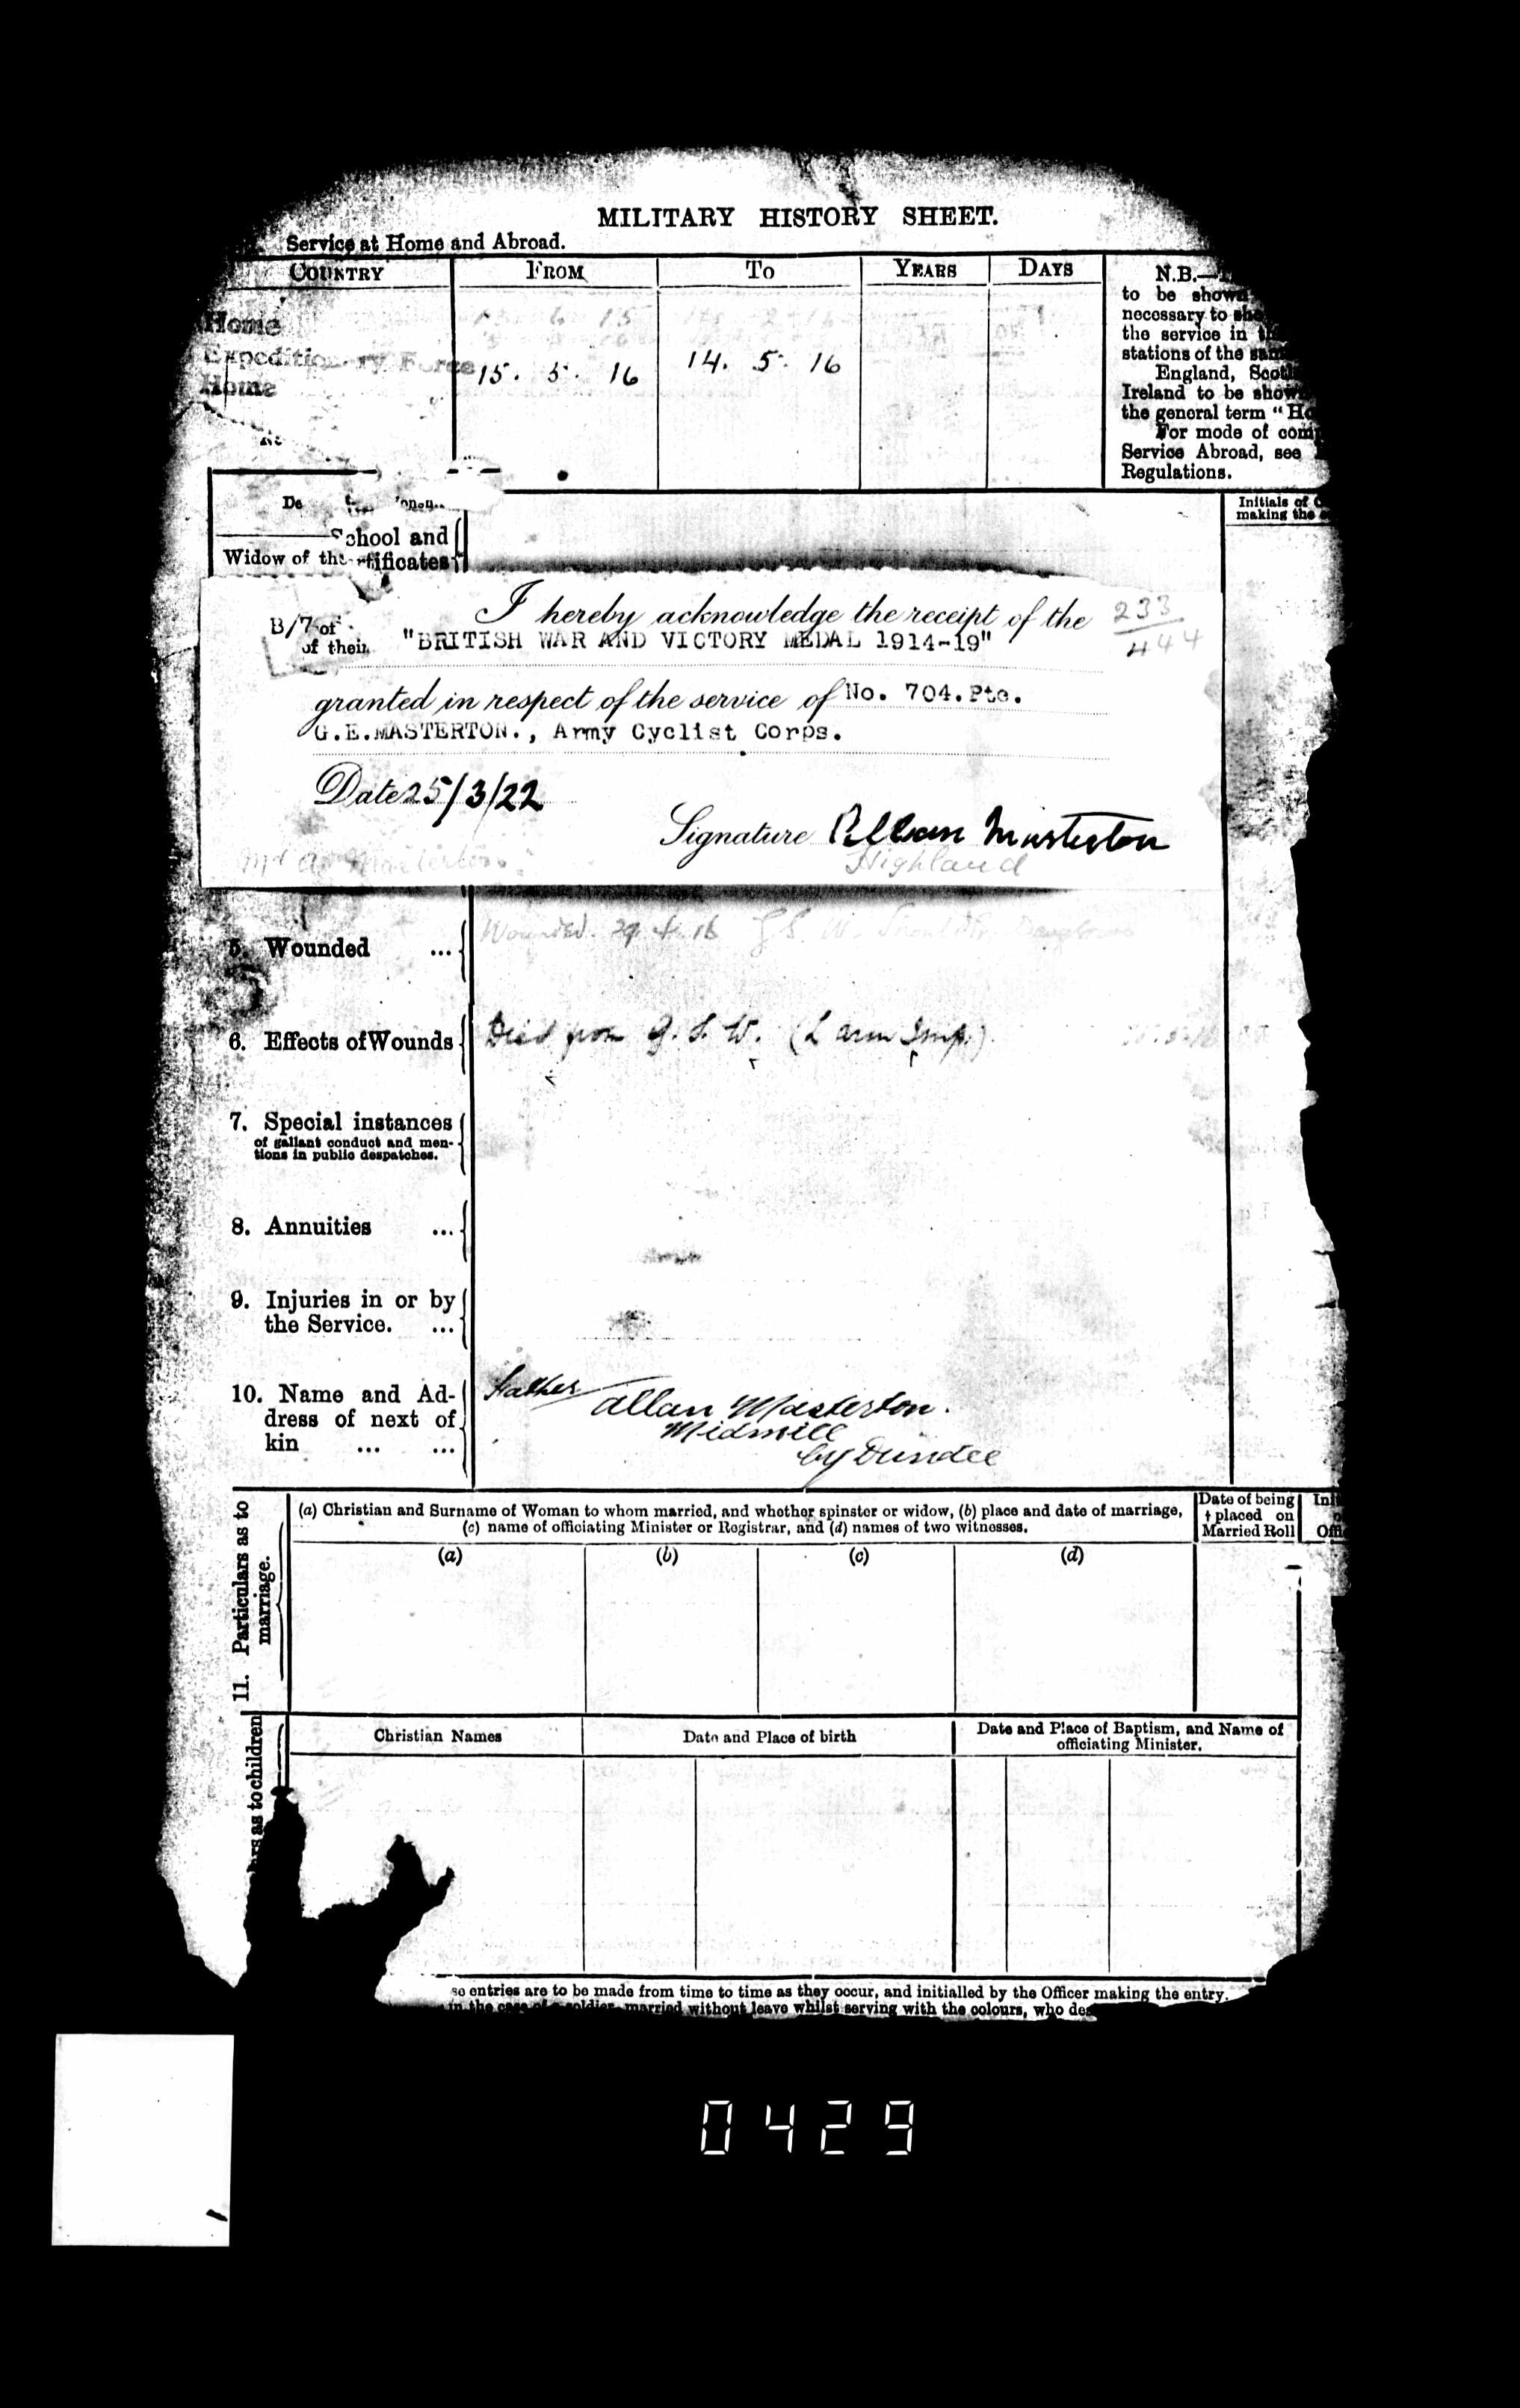 MILITARY HISTORY SHEET.
Service at Home and Abroad.
COUNTRY FROM TO YEARS DAYS
Home 13 6 15
Expeditionary Force 14. 5. 16
Home 15. 5. 16
N.B.—
to be shown
necessary to
the service in
stations of the
England,
Ireland to be
the general term "
For mode of
Service Abroad, see
Regulations.
Initials of
making the
School and
Widow of the
I hereby acknowledge the receipt of the
233
444
B/7 of
of their
"BRITISH WAR AND VICTORY MEDAL 1914-19"
granted in respect of the service of No. 704. Pte.
G.E.MASTERTON., Army Cyclist Corps.
Date 25/3/22
Signature Allan Masterton
Highland
Mr A. Masterton
5. Wounded ... Wounded 29. 4. 16 G.S.W. Shoulder Dangerous
6. Effects of Wounds Died from G.S.W. (L arm Imp.)
7. Special instances
of gallant conduct and men-
tions in public despatches.
8. Annuities ...
9. Injuries in or by
the Service. ...
10. Name and Ad-
dress of next of
kin ... ...
Father Allan Masterton.
Midmill
by Dundee
11. Particulars as to
marriage.
(a) Christian and Surname of Woman to whom married, and whether spinster or widow, (b) place and date of marriage,
(c) name of officiating Minister or Registrar, and (d) names of two witnesses.
Date of being
† placed on
Married Roll
(a) (b) (c) (d)
as to children
Christian Names Date and Place of birth
Date and Place of Baptism, and Name of
officiating Minister.
entries are to be made from time to time as they occur, and initialled by the Officer making the entry.
in the case of a soldier married without leave whilst serving with the colours, who
0429